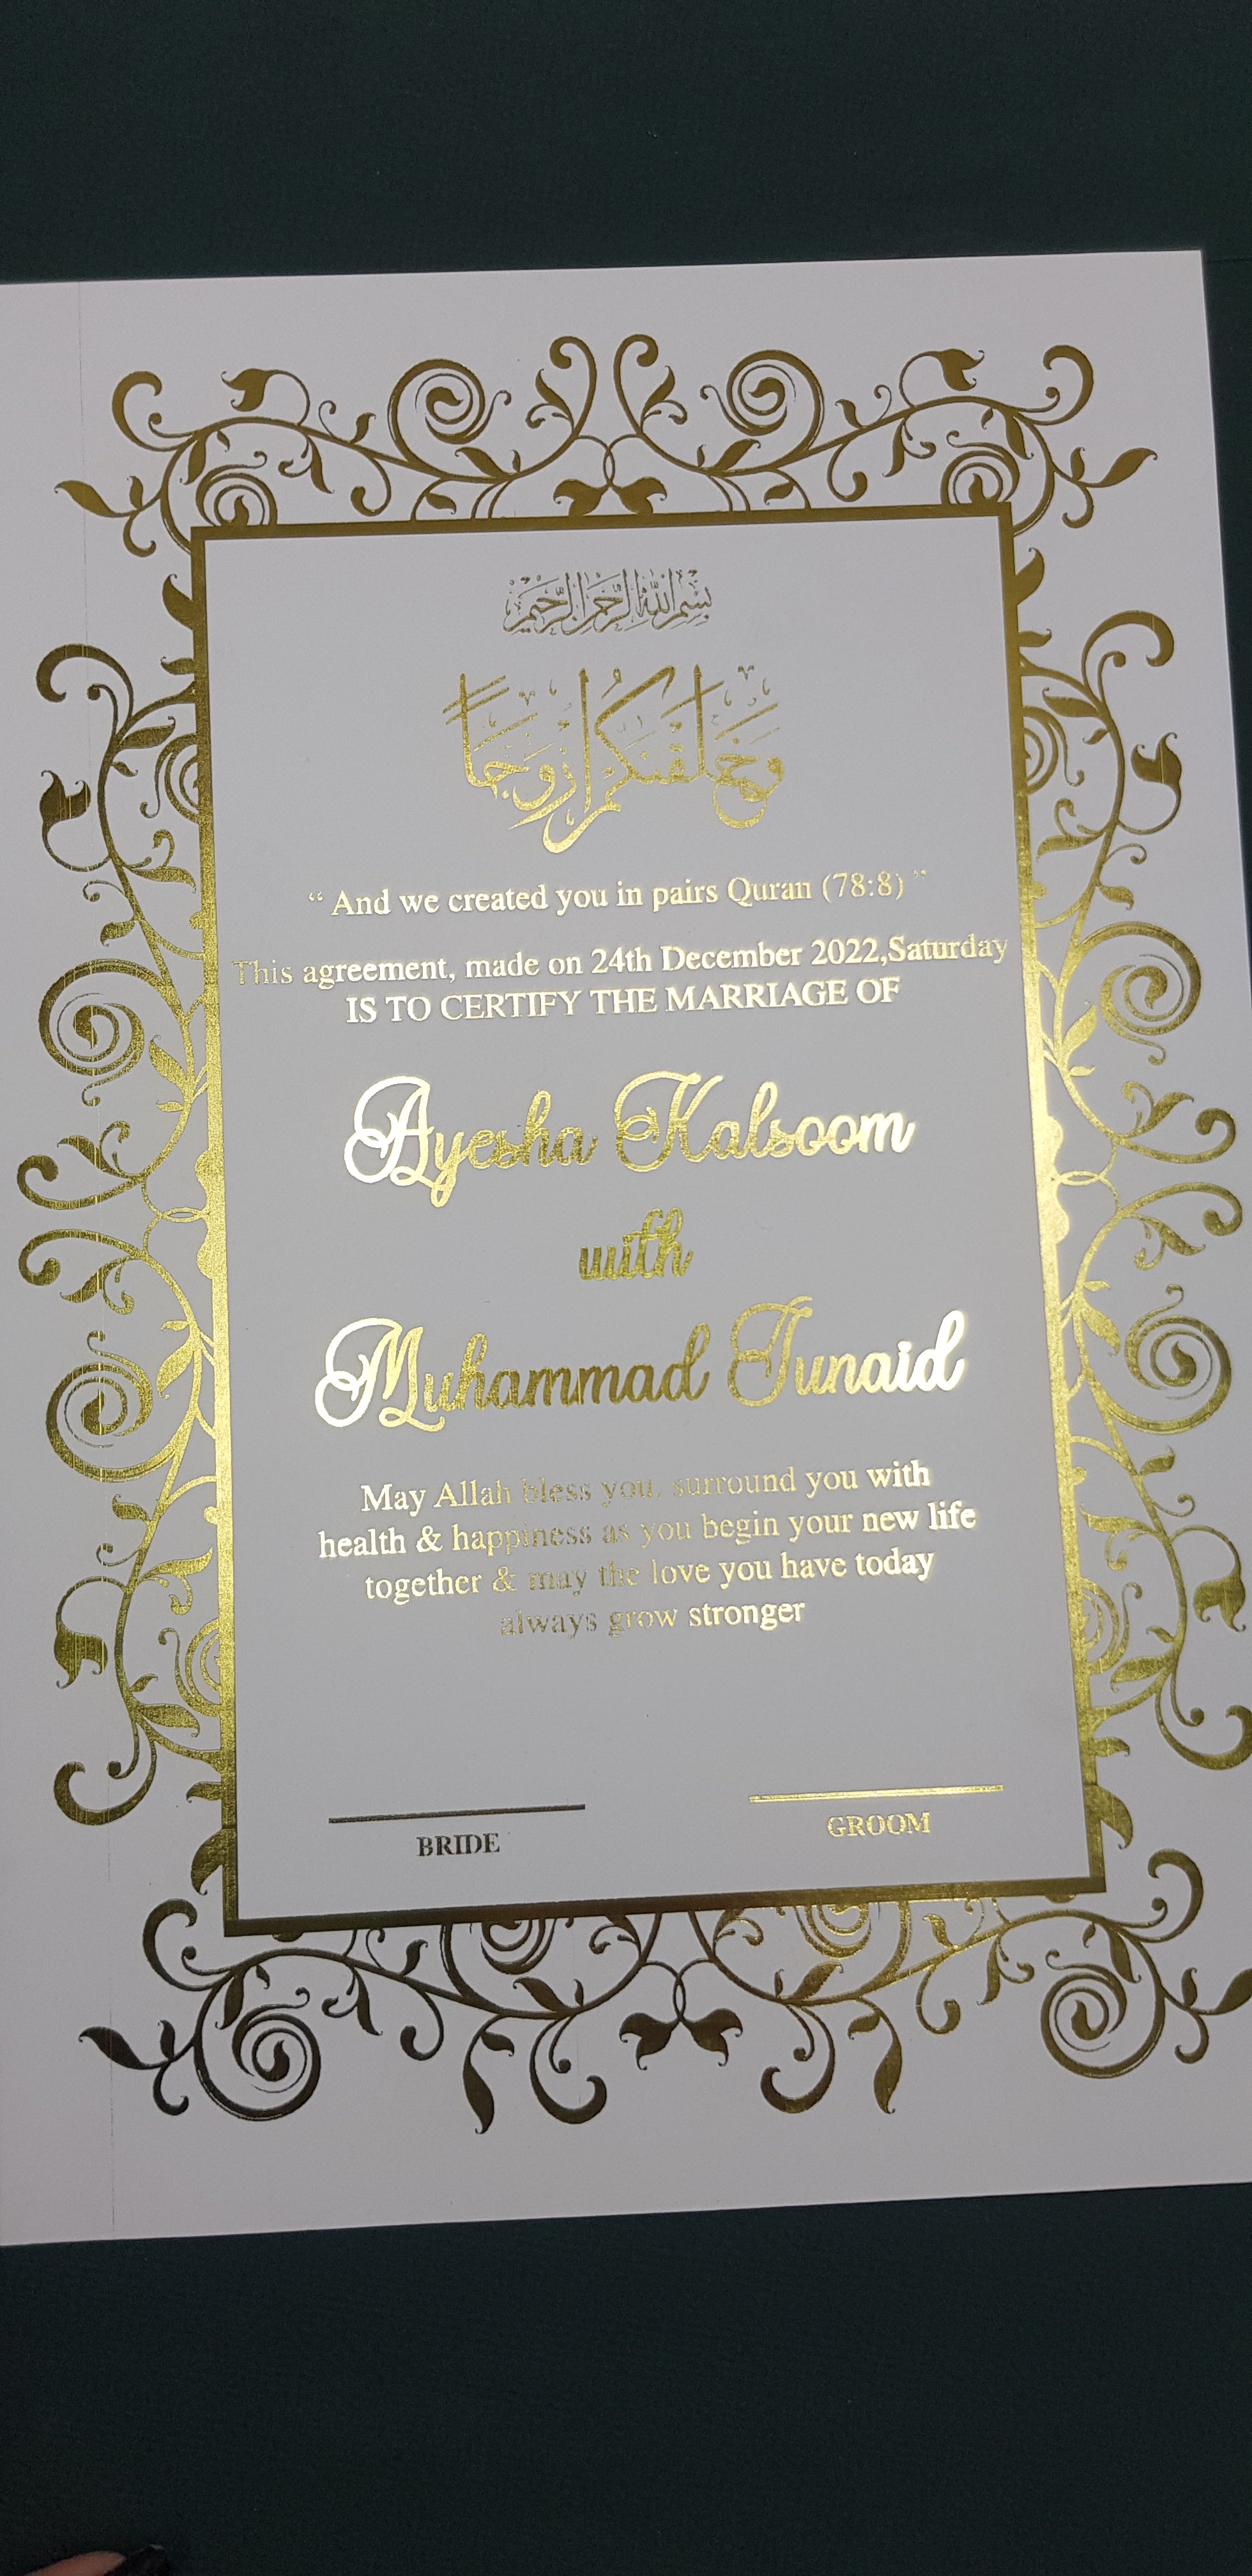 بِسْمِ اللَّهِ الرَّحْمَٰنِ الرَّحِيمِ
وَخَلَقْنَٰكُمْ أَزْوَٰجًا
“ And we created you in pairs Quran (78:8) ”
This agreement, made on 24th December 2022,Saturday
IS TO CERTIFY THE MARRIAGE OF
Ayesha Kalsoom
with
Muhammad Junaid
May Allah bless you, surround you with
health & happiness as you begin your new life
together & may the love you have today
always grow stronger
BRIDE
GROOM